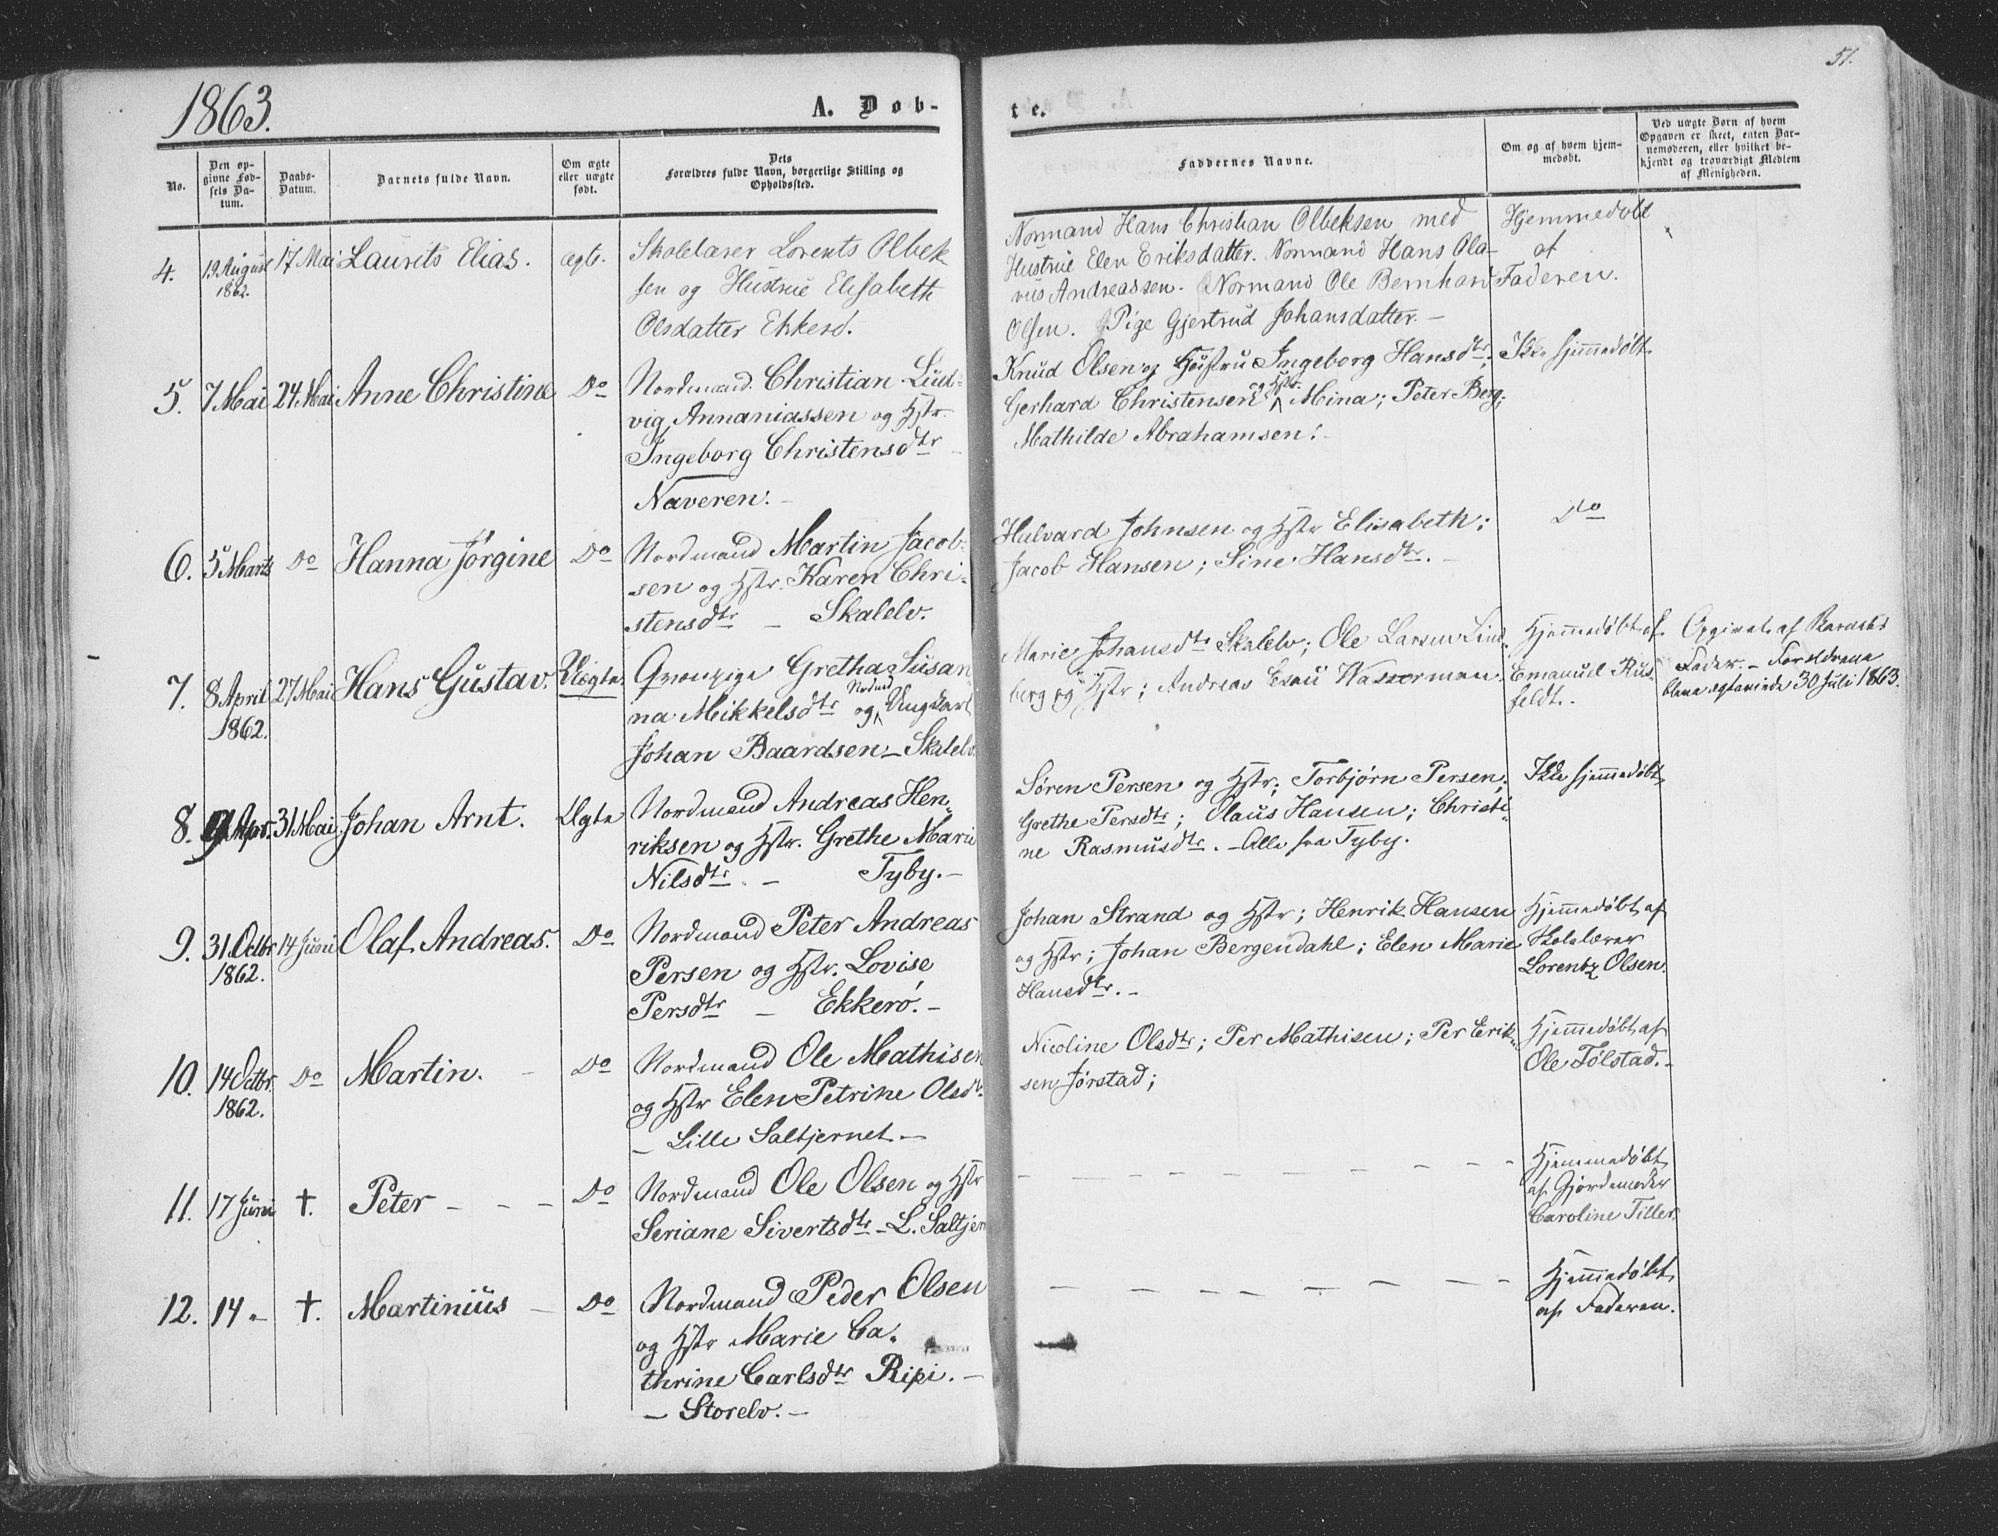 1863.
A. Døb-
te.
51.
No.
Den op-
givne Fød-
sels Da-
tum.
Daabs-
Datum.
Barnets fulde Navn.
Om ægte
eller uægte
født.
Dets
Forældres fulde Navn, borgerlige Stilling og
Opholdssted.
Faddernes Navne.
Om og af hvem hjem-
medøbt.
Ved uægte Børn af hvem
Opgaven er skeet, enten Bar-
nemoderen, eller hvilket be-
kjendt og troværdigt Medlem
af Menigheden.
4. 19 August 17 Mai Laurits Elias. ægte. Skolelærer Lorents Olbek
1862.
sen og Hustrue Elisabeth
Olsdatter Ekkerö.
Normand Hans Christian Olbeksen med Hjemmedöbt
Hustrue Elen Eriksdatter. Normand Hans Ola- af
vus Andreassen. Normand Ole Bernhard Faderen.
Olsen. Pige Gjertrud Johansdatter.-
5. 7 Mai 24. Mai Anne Christine Do Nordmand Christian Lud-
vig Annaniassen og Hstr.
Ingeborg Christensdtr
Naveren. -
Knud Olsen og Hustru Ingeborg Hansdtr; Ikke hjemmedøbt
Gerhard Christensen og Hstr. Mina; Peter Berg;
Mathilde Abrahamsen.
6. 5 Marts Do Hanna Jørgine Do Nordmand Martin Jacob-
sen og Hstr. Karen Chri-
stensdtr - Skalelv.
Halvard Johnsen og Hstr Elisabeth; Do
Jacob Hansen; Sine Hansdtr. -
7. 8 April 27 Mai Hans Gustav. Uægte Qvænpige Gretha Susan
1862.
na Mikkelsdtr og Nordmd Ungkarl
Johan Baardsen - Skalelv.
Marie Johansdtr Skalelv; Ole Larsen Lind- Hjemmedøbt af
berg og Hstr; Andreas Esau Wasserman. Emanuel Rus
feldt.
Opgivet af Barnets
Fader. - Forældrene
bleve ægteviede 30 Juli 1863.
8. 9 Apr. 31 Mai Johan Arnt. Ægte Nordmand Andreas Hen-
riksen og Hstr. Grethe Marie
Nilsdtr. - Tyby. -
Søren Persen og Hstr; Torbjørn Persen; Ikke hjemmedøbt
Grethe Persdtr; Olaus Hansen; Christi-
ne Rasmusdtr. - Alle fra Tyby.
9. 31. Octbr 14 Juni Olaf Andreas. Do Nordmand Peter Andreas
1862.
Persen og Hstr. Lovise
Persdtr - Ekkerö. -
Johan Strand og Hstr; Henrik Hansen Hjemmedøbt af
og Hstr; Johan Bergendahl; Elen Marie Skolelærer
Hansdtr. - Lorentz Olsen.
10. 14 Octbr. Do Martin. - Do Nordmand Ole Mathisen
1862.
og Hstr Elen Petrine Olsdtr.
- Lille Saltjernet -
Nicoline Olsdtr; Per Mathisen; Per Erik- Hjemmedøbt af
sen Jørstad; Ole Tølstad. -
11. 17 Juni †. Peter - - - Do Nordmand Ole Olsen og Hstr
Seriane Sivertsdtr - L. Saltjern
Hjemmedøbt
af Gjordemoder
Caroline Tiller.
12. 14 - †. Martinius - Do Nordmand Peder Olsen
og Hstr Marie Ca-
thrine Carlsdtr Ripi. -
- Storelv. -
Hjemmedøbt
af Faderen.